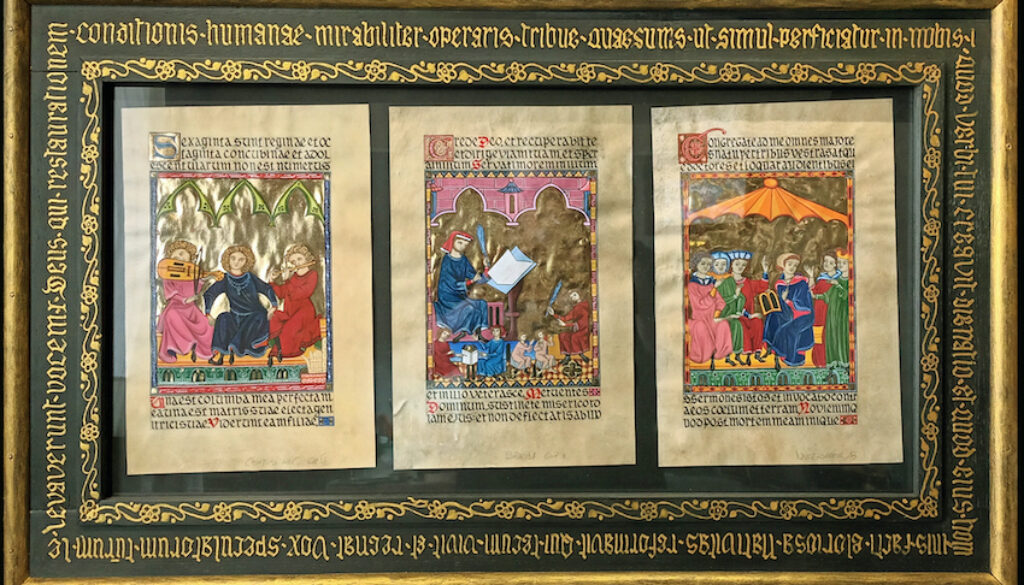 conditionis·humanae·mirabiliter·operaris·tribue·quaesumus·ut·simul·perficiatur·in·nobis·
quod·Verbi·tui·creavit·aeternitas·et·quod·eius·hom
inis·facti·gloriosa·Nativitas·reformavit·Qui·tecum·vivit·et·regnat·Vox·speculatorum·tuorum·le
levaverunt·vocem·Deus·qui·restaurationem
Sexaginta sunt reginae et oc
taginta concubinae et adol
escentularum non est numerus
Una est columba mea perfecta m
ea una est matris suae electa gen
itrici suae Viderunt eam filiae
Crede Deo, et recuperabit te
et dirige viam tuam, et sper
a in illum Serva timorem
et in illo veterasce, Metuentes
Dominum, sustinete misericord
iam ejus et non deflectatis ab
Congregate ad me omnes majore
s natu per tribus vestras atqu
doctores et loquar audientibus ei
s sermones istos et invocabo cont
ra eos coelum et terram Novi enim q
uod post mortem meam inique